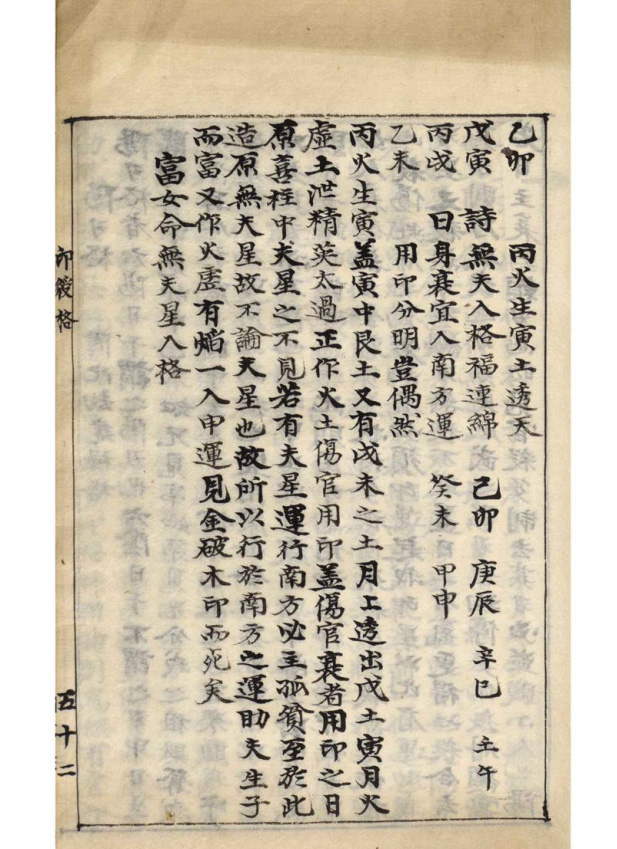 己卯　丙火生寅土透天
戊寅　詩　無夫入格福連綿　己卯　庚辰　辛巳　壬午
丙戌　曰　身衰宜入南方運　癸未　甲申
乙未　用印分明豈偶然
丙火生寅蓋寅中艮土又有戌未之土月上透出戊土寅月火
虛土泄精英太過正作火土傷官用印蓋傷官衰者用印之日
原喜柱中夫星之不見若有夫星運行南方必主孤貧至於此
造原無夫星故不論夫星也故所以行於南方之運助夫生子
而富又作火虛有焰一入申運見金破木印而死矣
富女命無夫星入格
印綬格
五十二